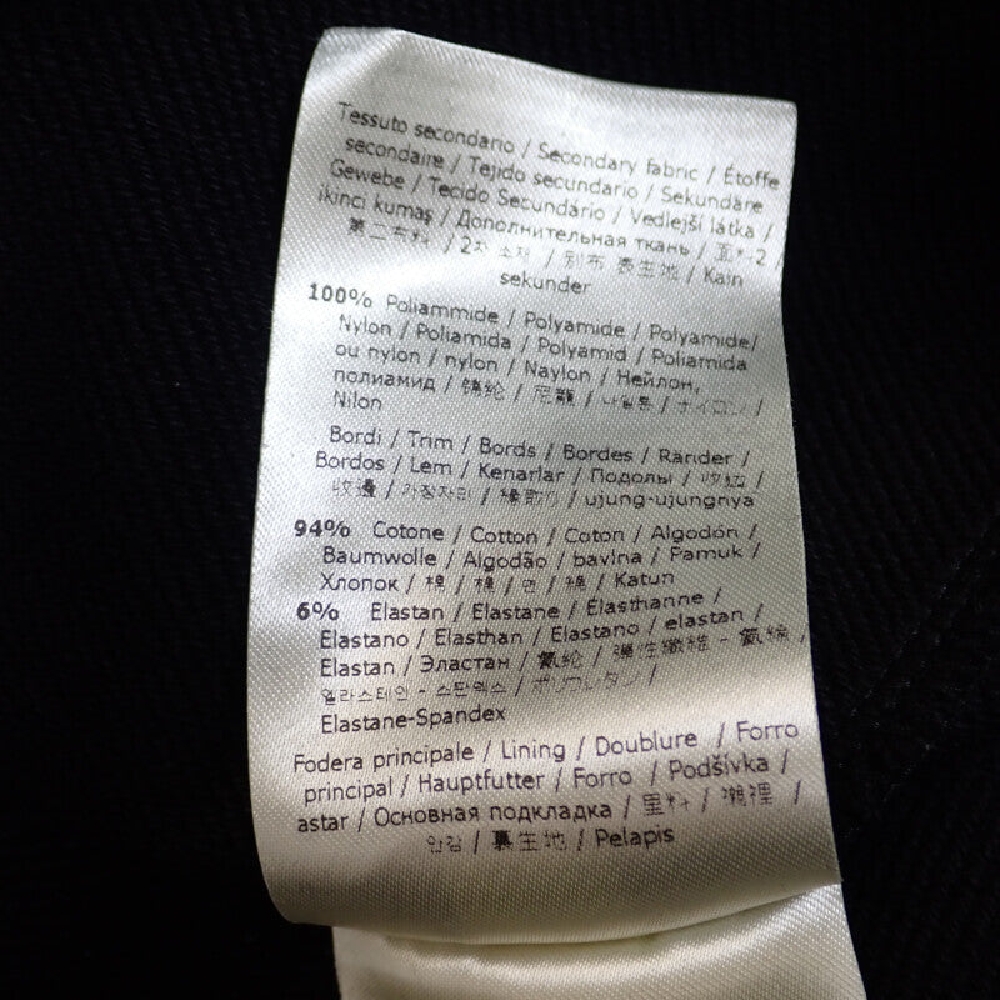 Tessuto secondario / Secondary fabric / Étoffe
secondaire / Tejido secundario / Sekundäre
Gewebe / Tecido Secundário / Vedlejší látka /
ikinci kumaş / Дополнительная ткань / 面料2
第二布料 / 2차 소재 / 別布 表生地 / Kain
sekunder
100% Poliammide / Polyamide / Polyamide/
Nylon / Poliamida / Polyamid / Poliamida
ou nylon / nylon / Naylon / Нейлон,
полиамид / 锦纶 / 尼龍 / 나일론 / ナイロン /
Nilon
Bordi / Trim / Bords / Bordes / Ränder /
Bordos / Lem / Kenarlar / Подолы / 收边 /
收邊 / 가장자리 / 縁取り / ujung-ujungnya
94% Cotone / Cotton / Coton / Algodón /
Baumwolle / Algodão / bavlna / Pamuk /
Хлопок / 棉 / 棉 / 면 / 綿 / Katun
6% Elastan / Elastane / Élasthanne /
Elastano / Elasthan / Elastano / elastan /
Elastan / Эластан / 氨纶 / 彈性纖維 - 氨綸 ,
엘라스테인 - 스판덱스 / ポリウレタン /
Elastane-Spandex
Fodera principale / Lining / Doublure / Forro
principal / Hauptfutter / Forro / Podšívka /
astar / Основная подкладка / 里料 / 襯裡 /
안감 / 裏生地 / Pelapis